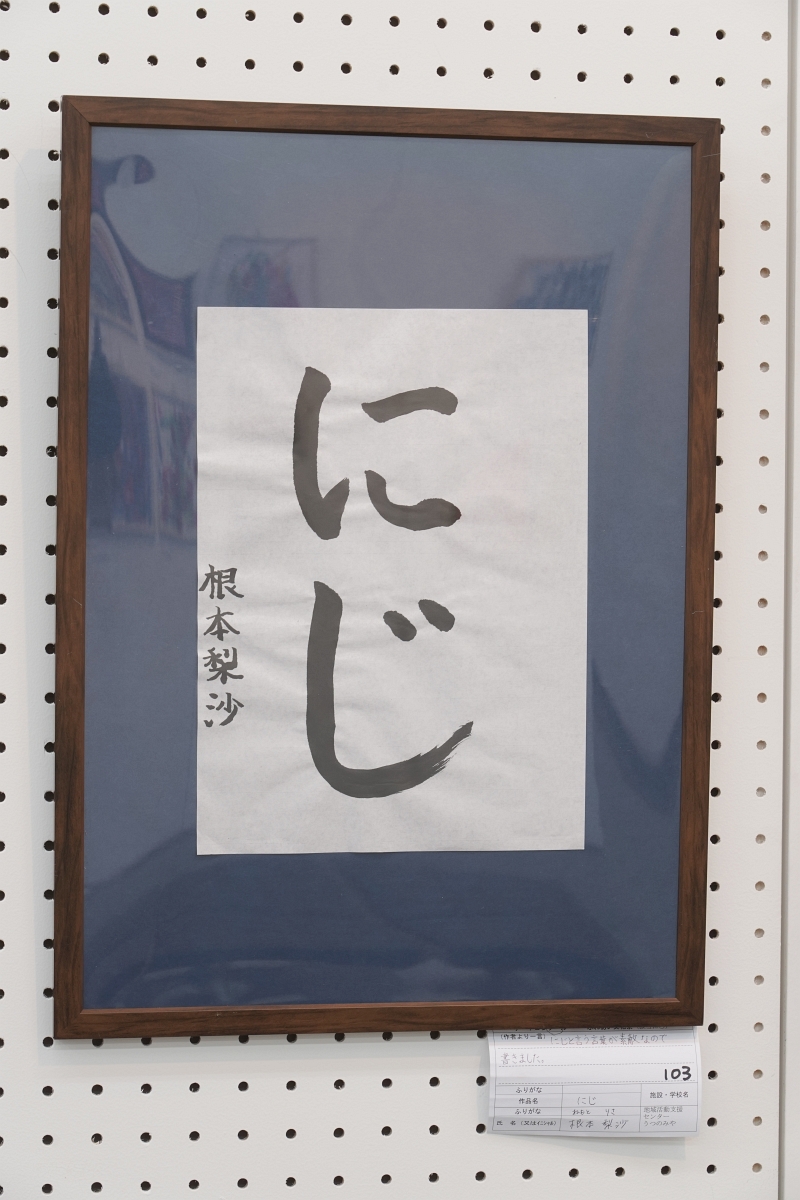 にじ
根本梨沙
(作者より一言)
にじと言う言葉が素敵なので
書きました。
103
ふりがな
作品名 にじ 施設・学校名
ふりがな ねもと りさ 地域活動支援
センター
うつのみや
氏 名 (又はイニシャル) 根本 梨沙